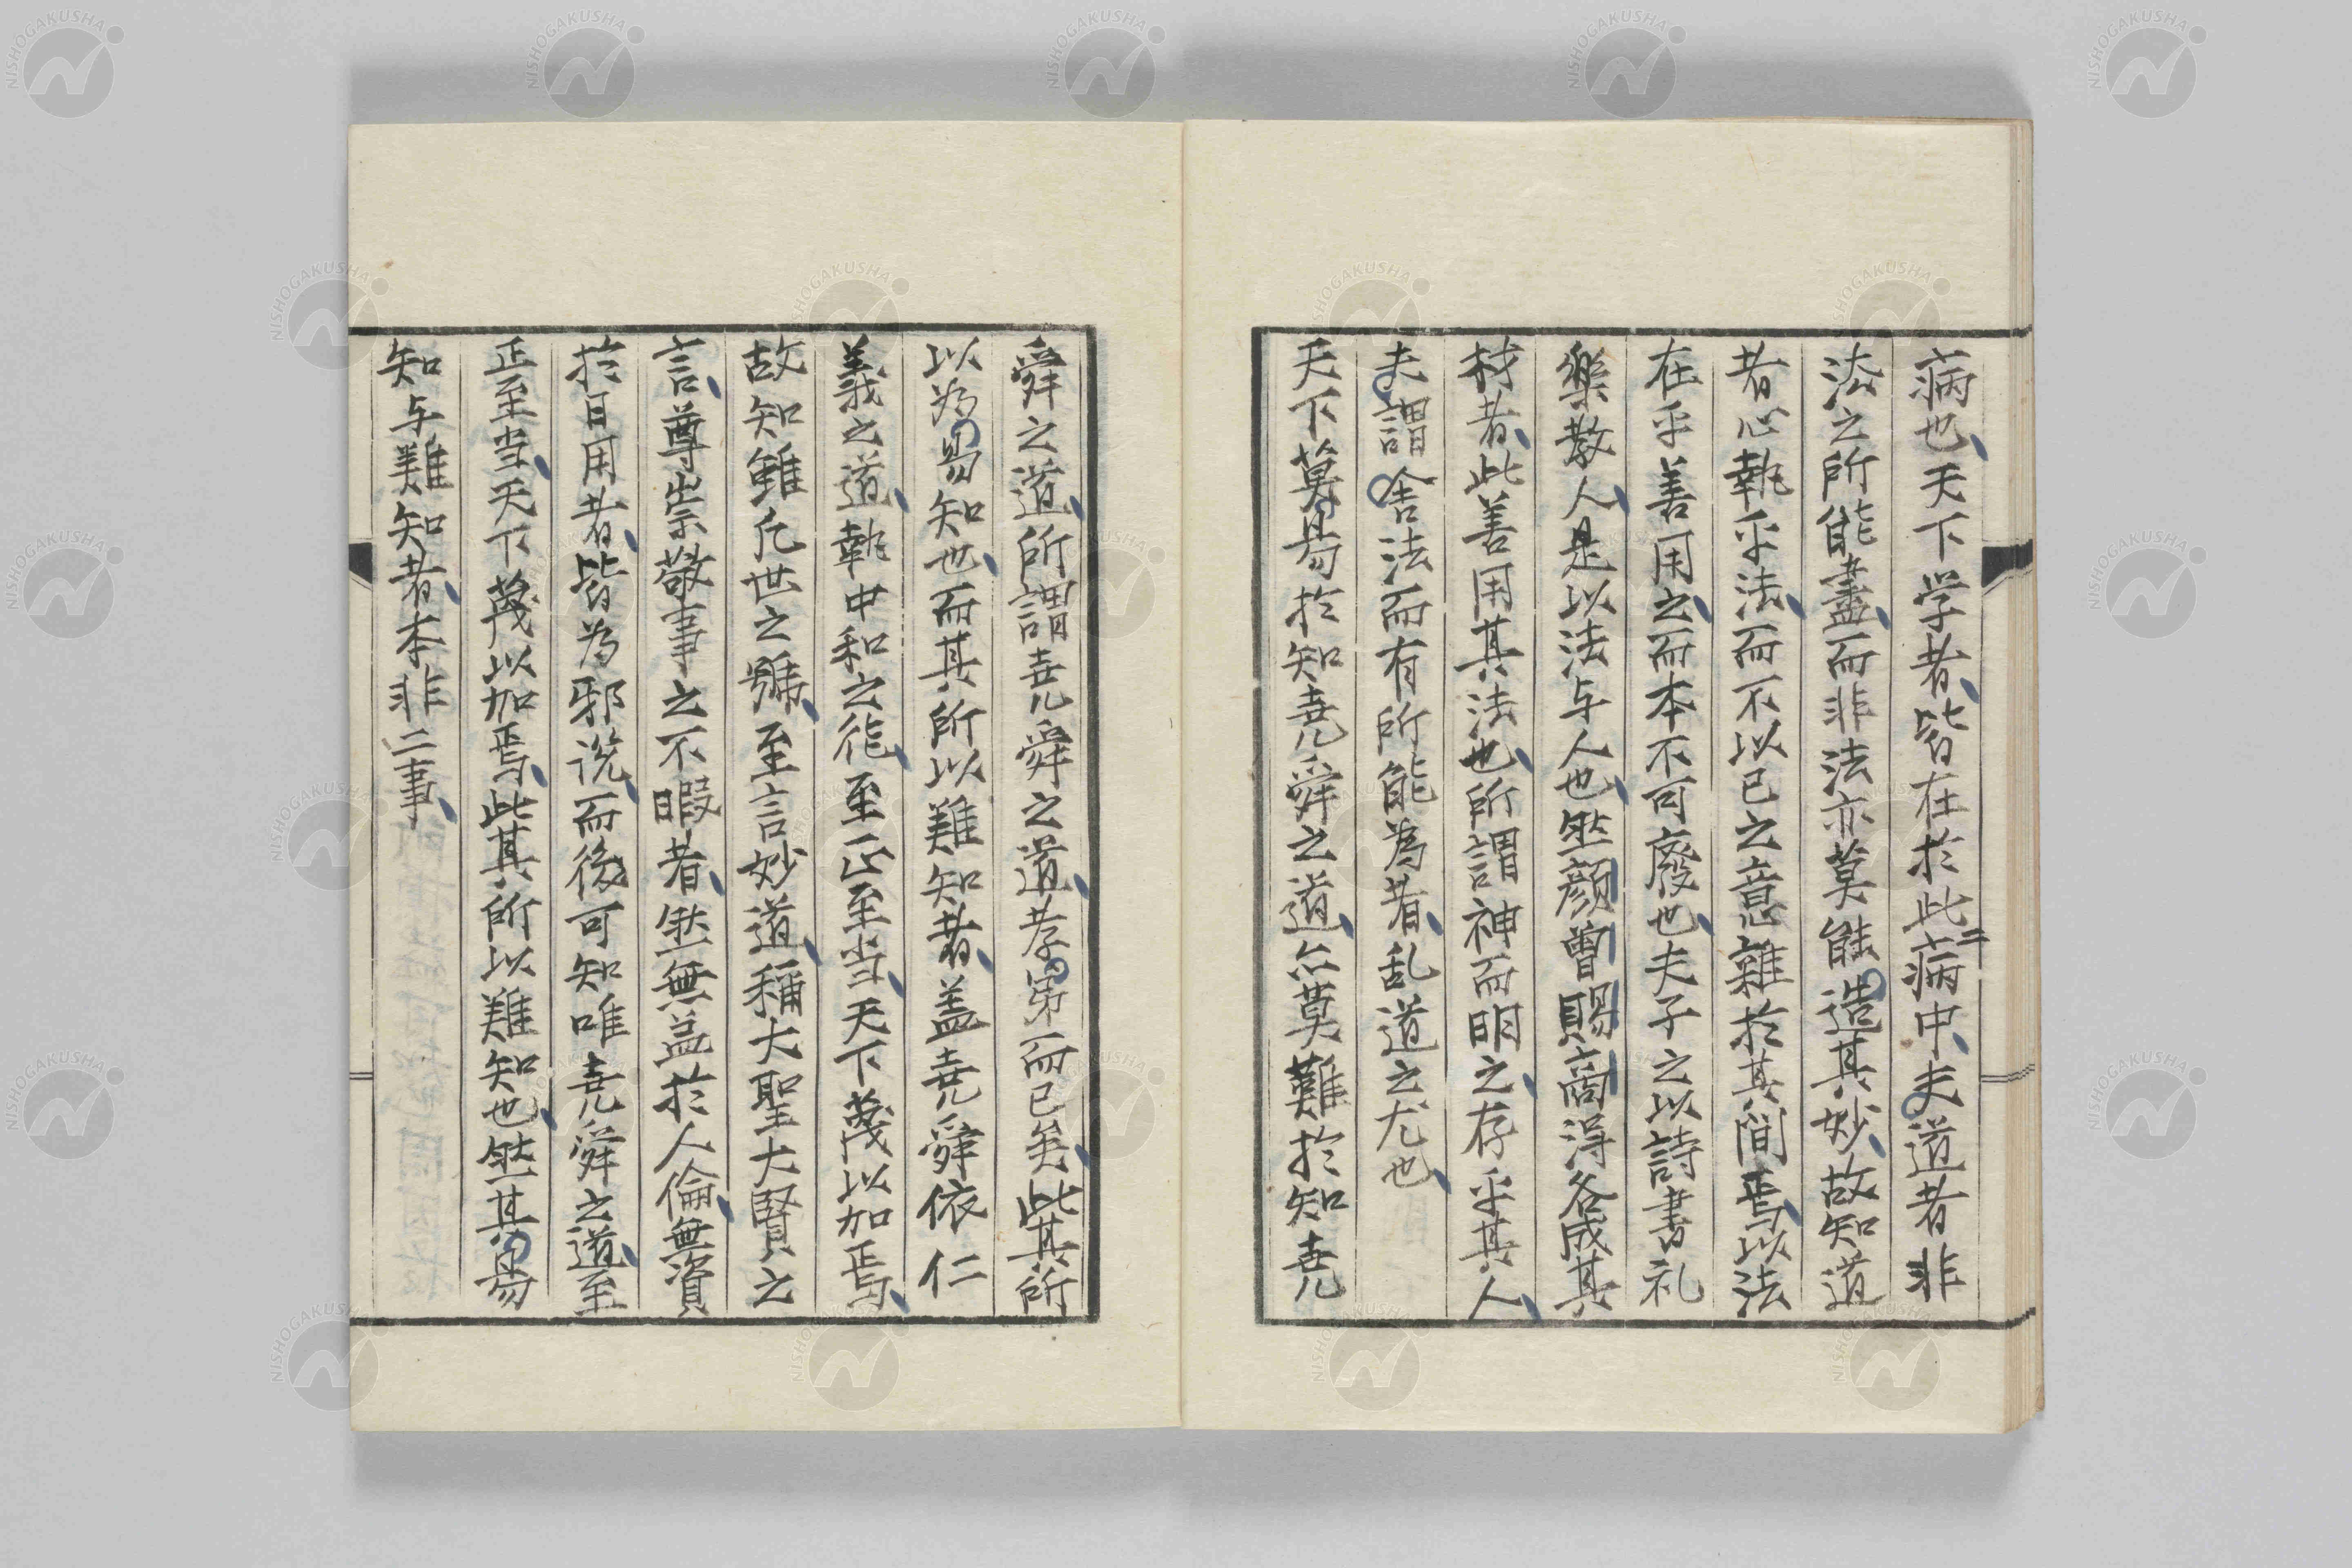 病也天下学者皆在於此病中夫道者非
法之所能盡而非法亦莫能造其妙故知道
者心執乎法而不以己之意雜於其間焉以法
在乎善用之而本不可廢也夫子之以詩書礼
樂教人是以法与人也然顔曽賜商得各成其
材者此善用其法也所謂神而明之存乎其人
夫謂舍法而有所能為者乱道之尤也
天下莫易於知尭舜之道亦莫難於知尭
舜之道所謂尭舜之道孝弟而已矣此其所
以為易知也而其所以難知者盖尭舜依仁
義之道執中和之徳至正至当天下蔑以加焉
故知雖凡世之號至言妙道稱大聖大賢之
言尊崇敬事之不暇者然無益於人倫無資
於日用者皆為邪説而後可知唯尭舜之道至
正至当天下蔑以加焉此其所以難知也然其易
知与難知者本非二事
NISHOGAKUSHA